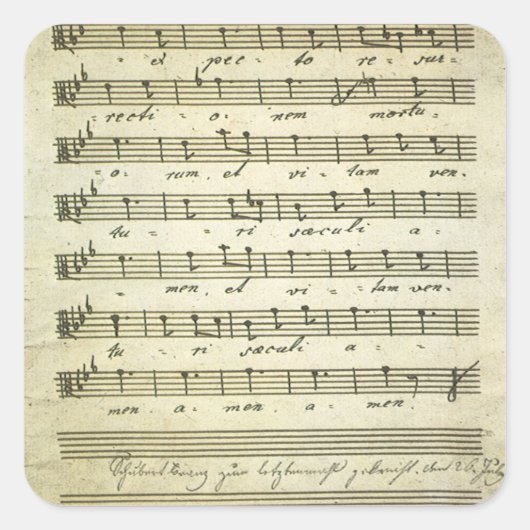 - ex - pec - to re - sur -
- recti - o - nem mortu -
- o - rum, et vi - tam ven -
- tu - ri sæculi a -
- men, et vi - tam ven -
- tu - ri sæculi a -
men. a - men. a - men.
Schubert Franz zum letztenmahl gekräht. den 26. July